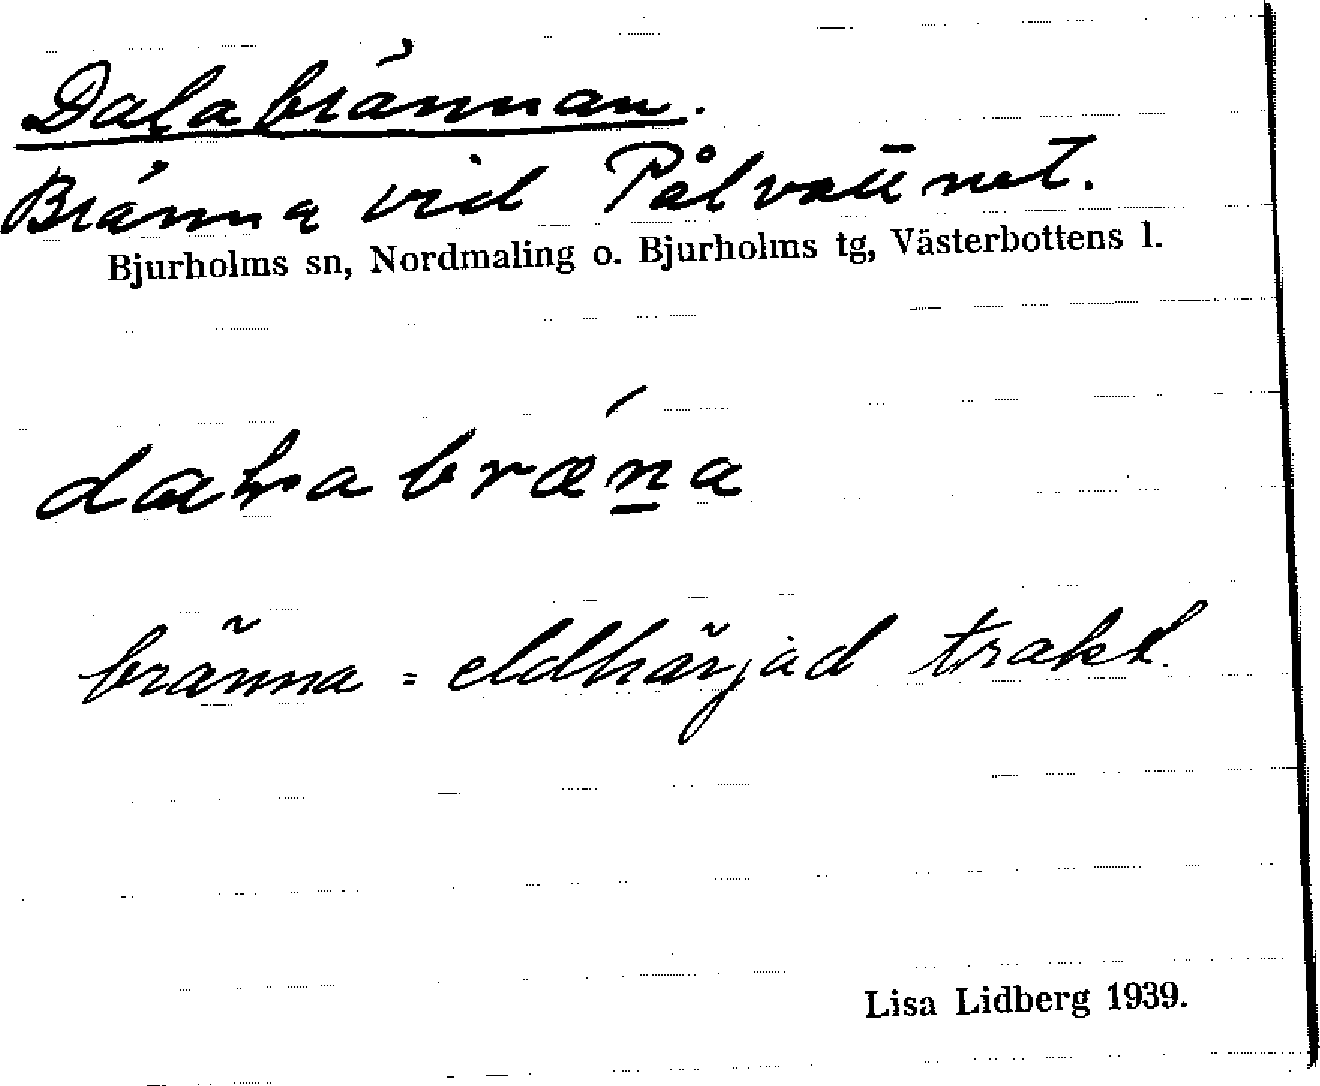 Dalabrännan.
Bränna vid Pålvattnet.
Bjurholms sn, Nordmaling o. Bjurholms tg, Västerbottens l.
bränna = eldhärjad trakt.
Lisa Lidberg 1939.